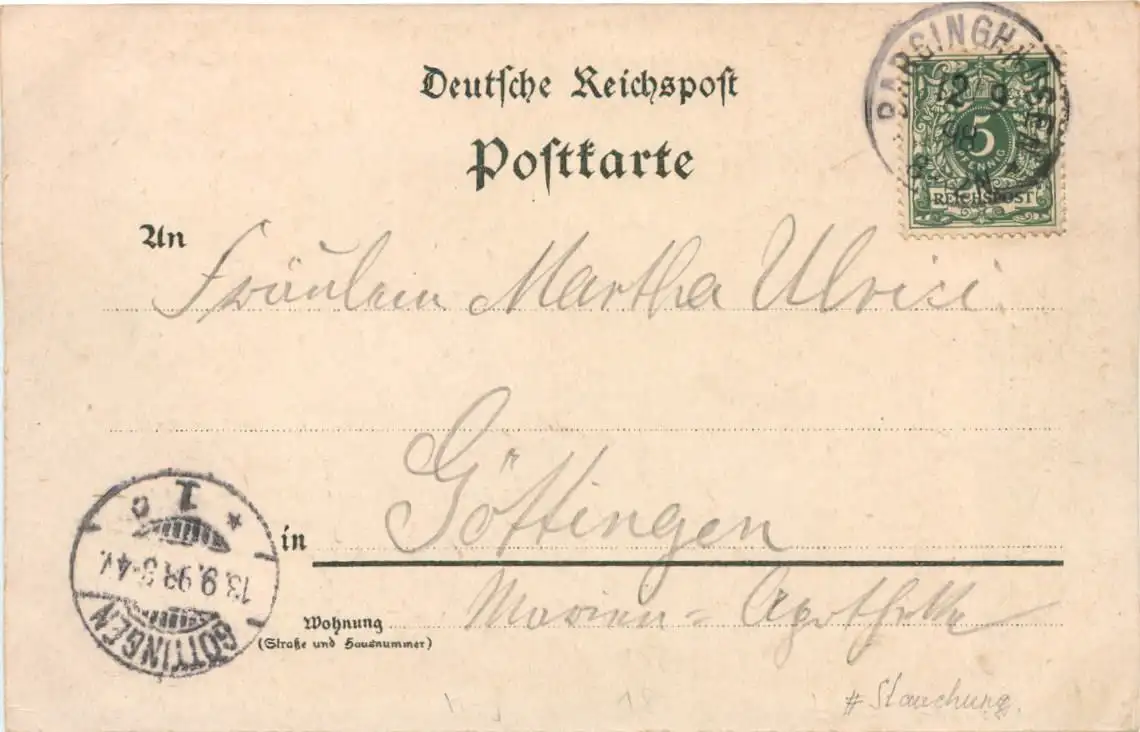 Deutsche Reichspost
Postkarte
BARSINGHAUSEN
12 9
98
5
PFENNIG
REICHSPOST
An Fräulein Martha Ulrici.
in Göttingen
Wohnung Marien-Apotheke
(Straße und Hausnummer)
GÖTTINGEN
13.9.98
1
# Stauchung.